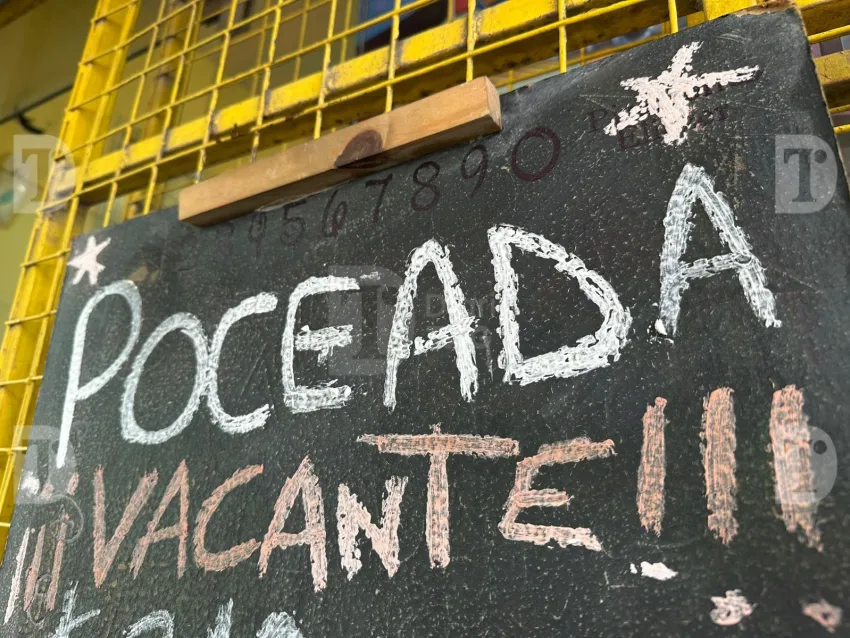 567890
POCEADA
¡¡¡VACANTE!!!